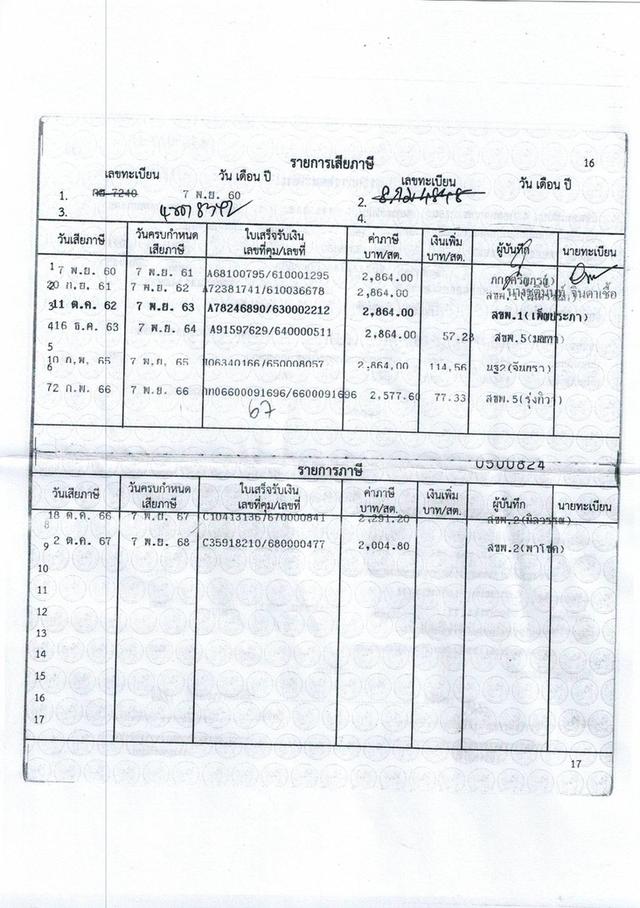 รายการเสียภาษี 16
เลขทะเบียน วัน เดือน ปี เลขทะเบียน วัน เดือน ปี
1. 7240 7 พ.ย. 60 2.
3. 4.
วันเสียภาษี วันครบกำหนดเสียภาษี ใบเสร็จรับเงิน เลขที่คุม/เลขที่ ค่าภาษี บาท/สต. เงินเพิ่ม บาท/สต. ผู้บันทึก นายทะเบียน
1 7 พ.ย. 60 7 พ.ย. 61 A68100795/610001295 2,864.00
2 0 ก.ย. 61 7 พ.ย. 62 A72381741/610036678 2,864.00 นางชุตินันท์ จินดาเชื้อ
3 11 ต.ค. 62 7 พ.ย. 63 A78246890/630002212 2,864.00 สขพ.1(เพ็ญประภา)
4 16 ธ.ค. 63 7 พ.ย. 64 A91597629/640000511 2,864.00 57.28 สขพ.5(มลฑา)
5
6 10 ก.พ. 65 7 พ.ย. 65 06340166/650008057 2,864.00 114.56 นฐ2(จันทรา)
7 2 ก.พ. 66 7 พ.ย. 66 06600091696/6600091696 2,577.60 77.33 สขพ.5(รุ่งทิวา)
67
0500824
รายการภาษี
วันเสียภาษี วันครบกำหนดเสียภาษี ใบเสร็จรับเงิน เลขที่คุม/เลขที่ ค่าภาษี บาท/สต. เงินเพิ่ม บาท/สต. ผู้บันทึก นายทะเบียน
8 18 ต.ค. 66 7 พ.ย. 67 C10413136/670000841 2,291.20
9 2 ต.ค. 67 7 พ.ย. 68 C35918210/680000477 2,004.80 สขพ.2(พาโชค)
10
11
12
13
14
15
16
17
17